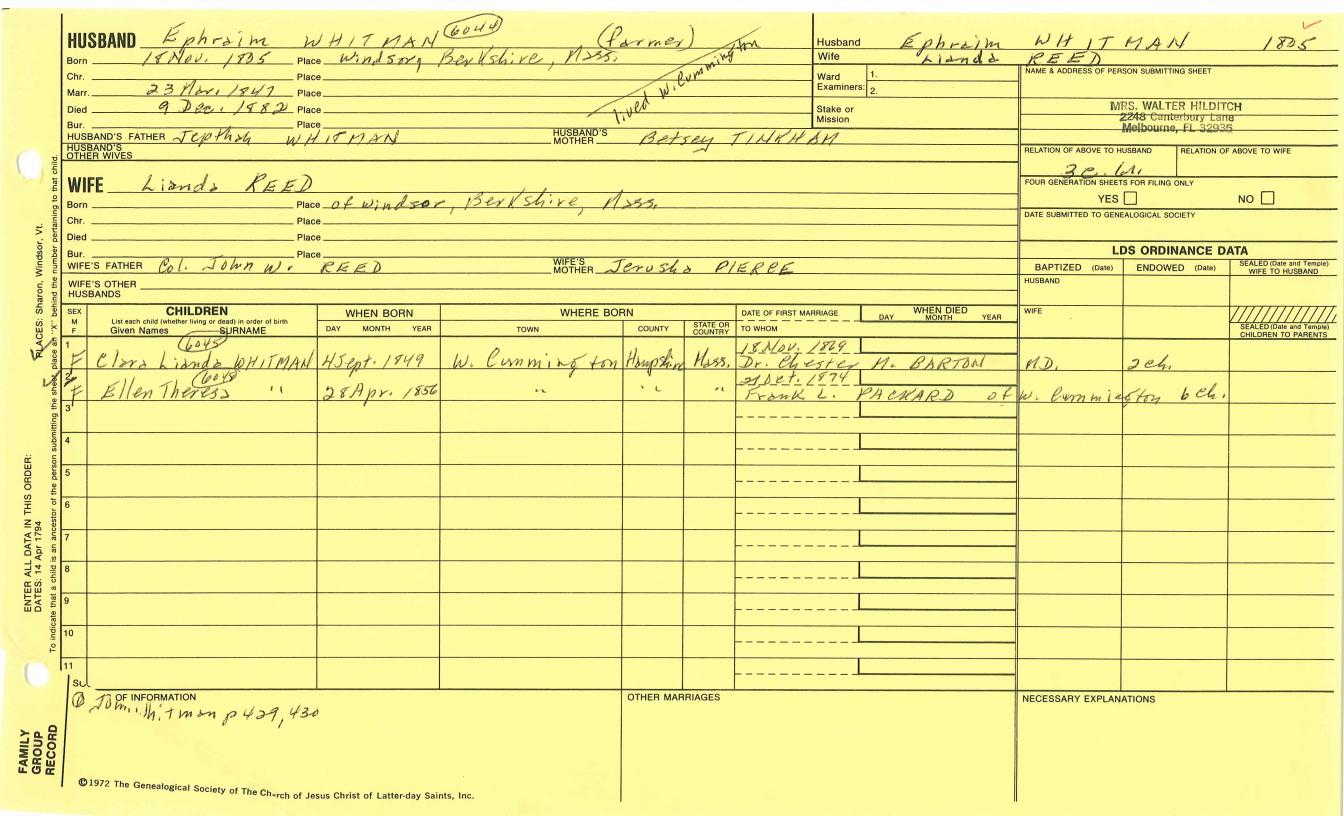 HUSBAND Ephraim WHITMAN 6044 (farmer)
Born 18 Nov. 1805 Place Windsor, Berkshire, Mass.
Chr. Place
Marr. 23 Mar. 1847 Place
Died 9 Dec. 1882 Place
Bur. Place
lived W. Cummington
HUSBAND'S FATHER Jepthah WHITMAN HUSBAND'S MOTHER Betsey TINKHAM
HUSBAND'S OTHER WIVES
WIFE Lianda REED
Born Place of Windsor, Berkshire, Mass.
Chr. Place
Died Place
Bur. Place
WIFE'S FATHER Col. John W. REED WIFE'S MOTHER Jerusha PIERCE
WIFE'S OTHER HUSBANDS
Husband Ephraim WHITMAN 1805
Wife Lianda REED
Ward Examiners: 1.
2.
Stake or Mission
NAME & ADDRESS OF PERSON SUBMITTING SHEET
MRS. WALTER HILDITCH
2248 Canterbury Lane
Melbourne, FL 32935
RELATION OF ABOVE TO HUSBAND RELATION OF ABOVE TO WIFE
FOUR GENERATION SHEETS FOR FILING ONLY
YES NO
DATE SUBMITTED TO GENEALOGICAL SOCIETY
LDS ORDINANCE DATA
BAPTIZED (Date) ENDOWED (Date) SEALED (Date and Temple) WIFE TO HUSBAND
HUSBAND
WIFE
SEALED (Date and Temple) CHILDREN TO PARENTS
SEX M F
CHILDREN
List each child (whether living or dead) in order of birth
Given Names SURNAME
WHEN BORN
DAY MONTH YEAR
WHERE BORN
TOWN COUNTY STATE OR COUNTRY
DATE OF FIRST MARRIAGE
TO WHOM
WHEN DIED
DAY MONTH YEAR
1 6045 18 Nov. 1869
F Clara Lianda WHITMAN 4 Sept. 1849 W. Cummington Hampshire Mass. Dr. Chester M. BARTON M.D. 2 ch.
2 6048 21 Oct. 1874
F Ellen Theress " 28 Apr. 1856 " " " Frank L. PACKARD of W. Cummington 6 ch.
3
4
5
6
7
8
9
10
11
OF INFORMATION
p 429, 430
OTHER MARRIAGES
NECESSARY EXPLANATIONS
©1972 The Genealogical Society of The Church of Jesus Christ of Latter-day Saints, Inc.
FAMILY GROUP RECORD
ENTER ALL DATA IN THIS ORDER:
DATES: 14 Apr 1794
PLACES: Sharon, Windsor, Vt.
To indicate that a child is an ancestor of the person submitting the sheet, place an "X" behind the number pertaining to that child.